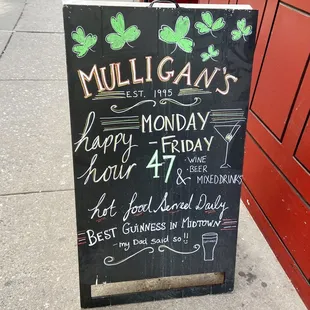 MULLIGAN'S
EST. 1995
happy hour
MONDAY
- FRIDAY
47
WINE
BEER
& MIXED DRINKS
hot food Served Daily
BEST GUINNESS IN MIDTOWN
- my Dad said so!!